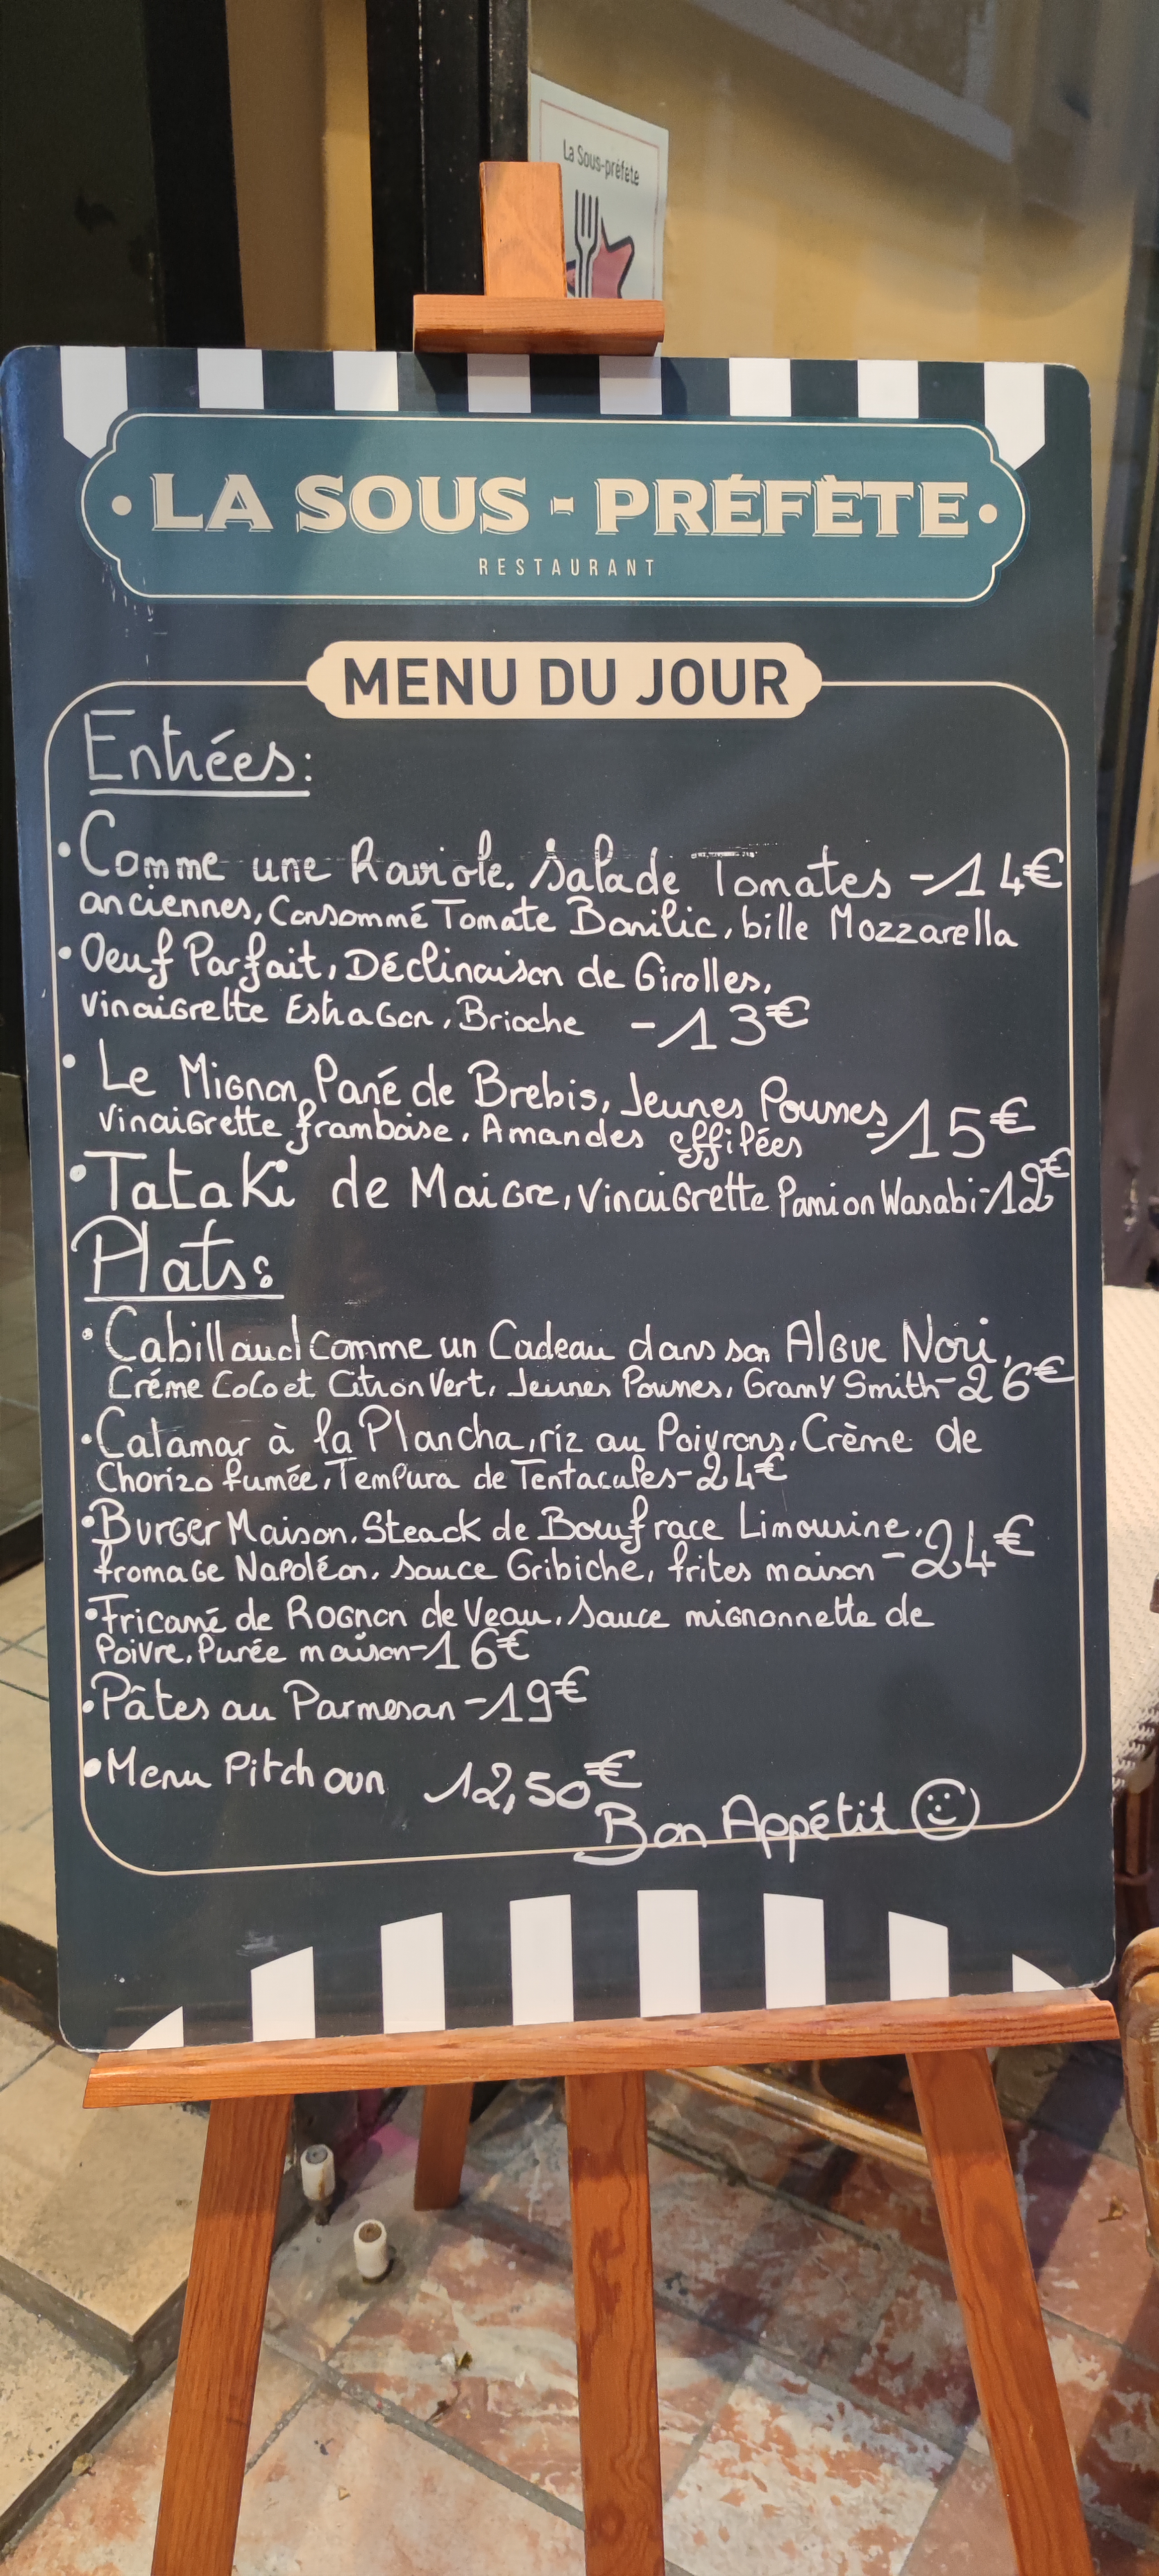 La Sous-préfète
LA SOUS - PRÉFÈTE
RESTAURANT
MENU DU JOUR
Entrées:
• Comme une Raviole, Salade Tomates - 14€
anciennes, Consommé Tomate Basilic, bille Mozzarella
• Oeuf Parfait, Déclinaison de Girolles,
Vinaigrette Estragon, Brioche - 13€
• Le Mignon Pané de Brebis, Jeunes Pousses
Vinaigrette framboise, Amandes effilées - 15€
• Tataki de Maigre, Vinaigrette Passion Wasabi - 12€
Plats:
• Cabillaud comme un Cadeau dans son Algue Nori,
Créme Coco et Citron Vert, Jeunes Pousses, Grany Smith - 26€
• Calamar à la Plancha, riz au Poivrons, Crème de
Chorizo fumée, Tempura de Tentacules - 24€
• Burger Maison, Steack de Boeuf race Limousine,
fromage Napoléon, sauce Gribiche, frites maison - 24€
• Fricassé de Rognon de Veau, Sauce mignonnette de
Poivre, Purée maison - 16€
• Pâtes au Parmesan - 19€
• Menu Pitchoun 12,50€
Bon Appétit